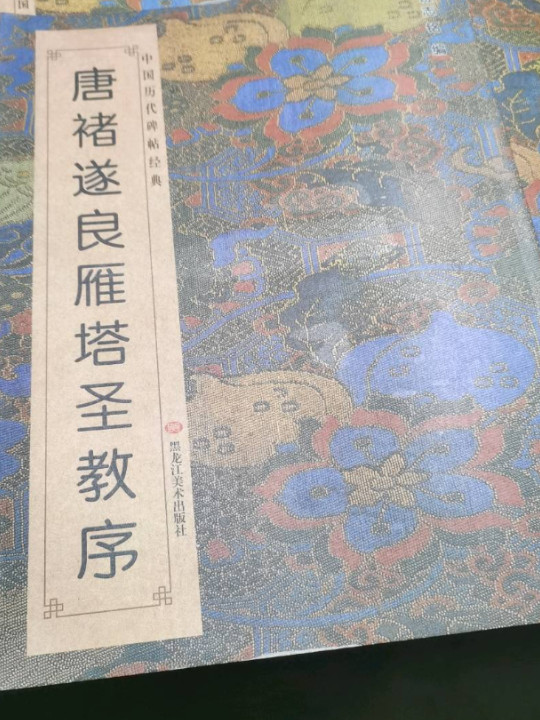 国
中国历代碑帖经典
唐褚遂良雁塔圣教序
黑龙江美术出版社
编